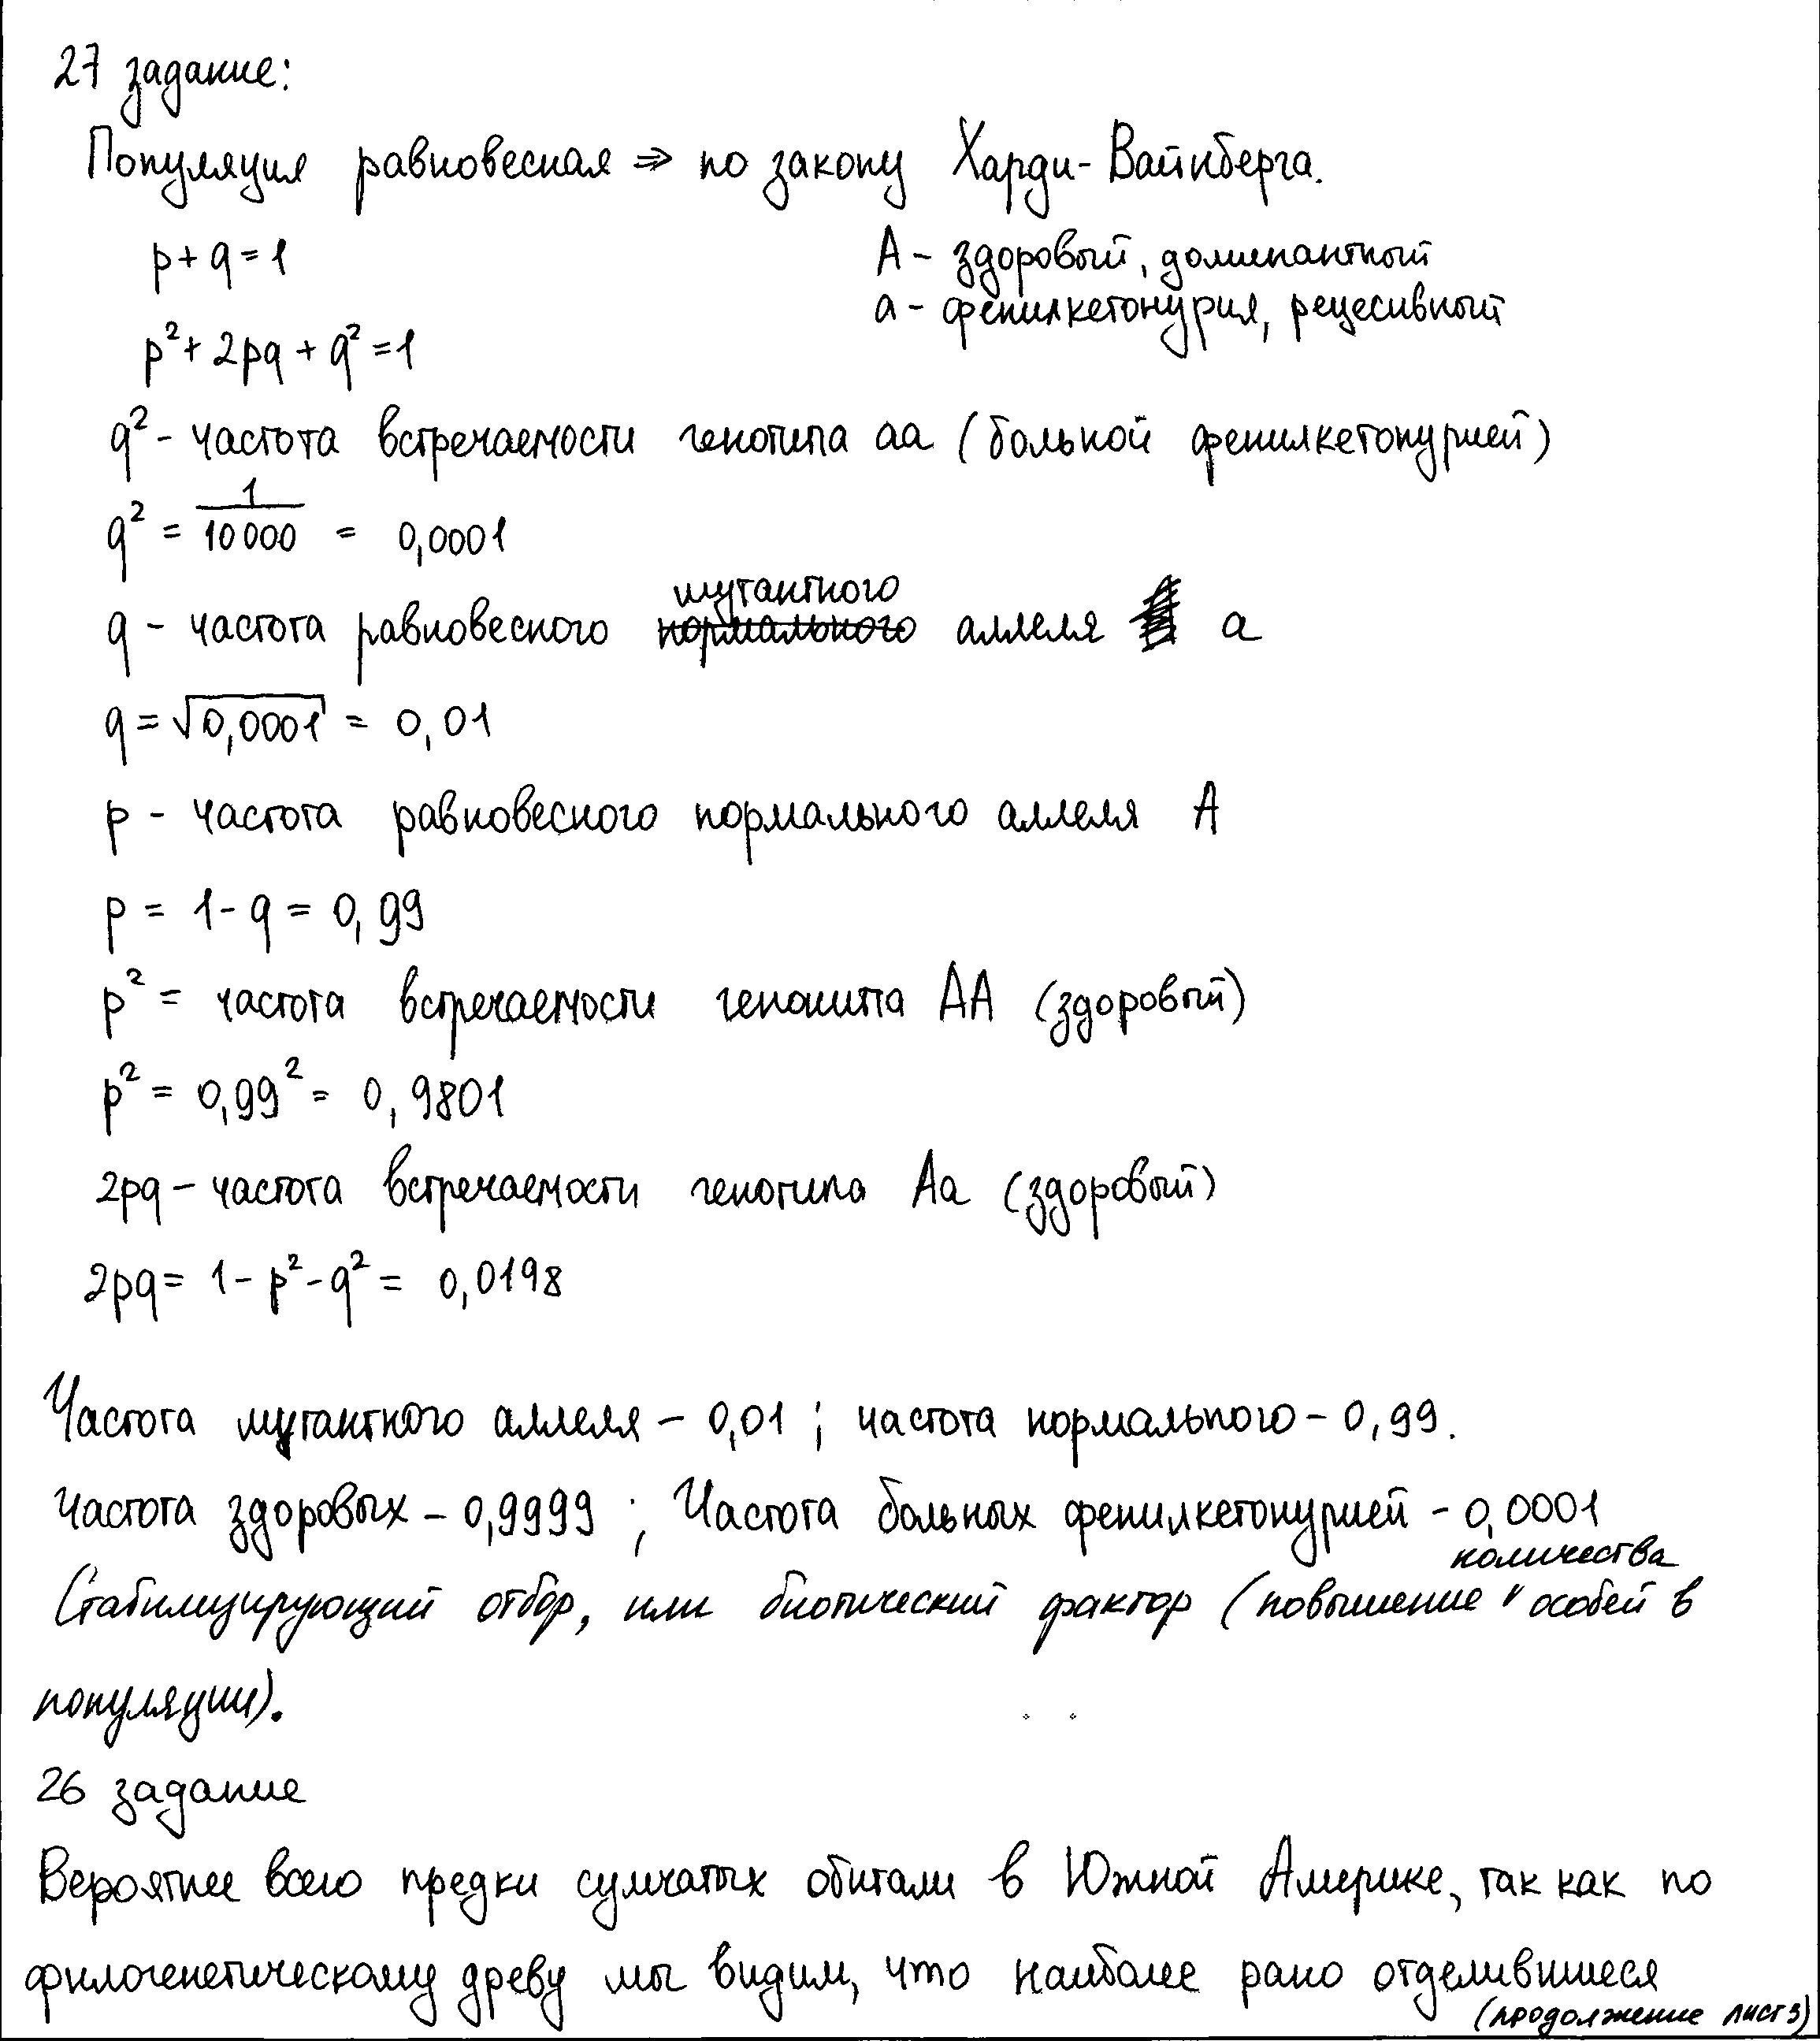 27 задание:
Популяция равновесная => по закону Харди-Вайнберга.
p + q = 1
A - здоровый, доминантный
p² + 2pq + q² = 1
a - фенилкетонурия, рецесивный
q² - частота встречаемости генотипа aa (больной фенилкетонурией)
q² = 1/10000 = 0,0001
мутантного
q - частота равновесного нормального аллеля a
q = √0,0001 = 0,01
p - частота равновесного нормального аллеля A
p = 1 - q = 0,99
p² = частота встречаемости генотипа AA (здоровый)
p² = 0,99² = 0,9801
2pq - частота встречаемости генотипа Aa (здоровый)
2pq = 1 - p² - q² = 0,0198
Частота мутантного аллеля - 0,01 ; частота нормального - 0,99.
Частота здоровых - 0,9999 ; Частота больных фенилкетонурией - 0,0001
количества
Стабилизирующий отбор, или биотический фактор (повышение особей в
популяции).
26 задание
Вероятнее всего предки сумчатых обитали в Южной Америке, так как по
филогенетическому древу мы видим, что наиболее рано отделившиеся
(продолжение лист 3)